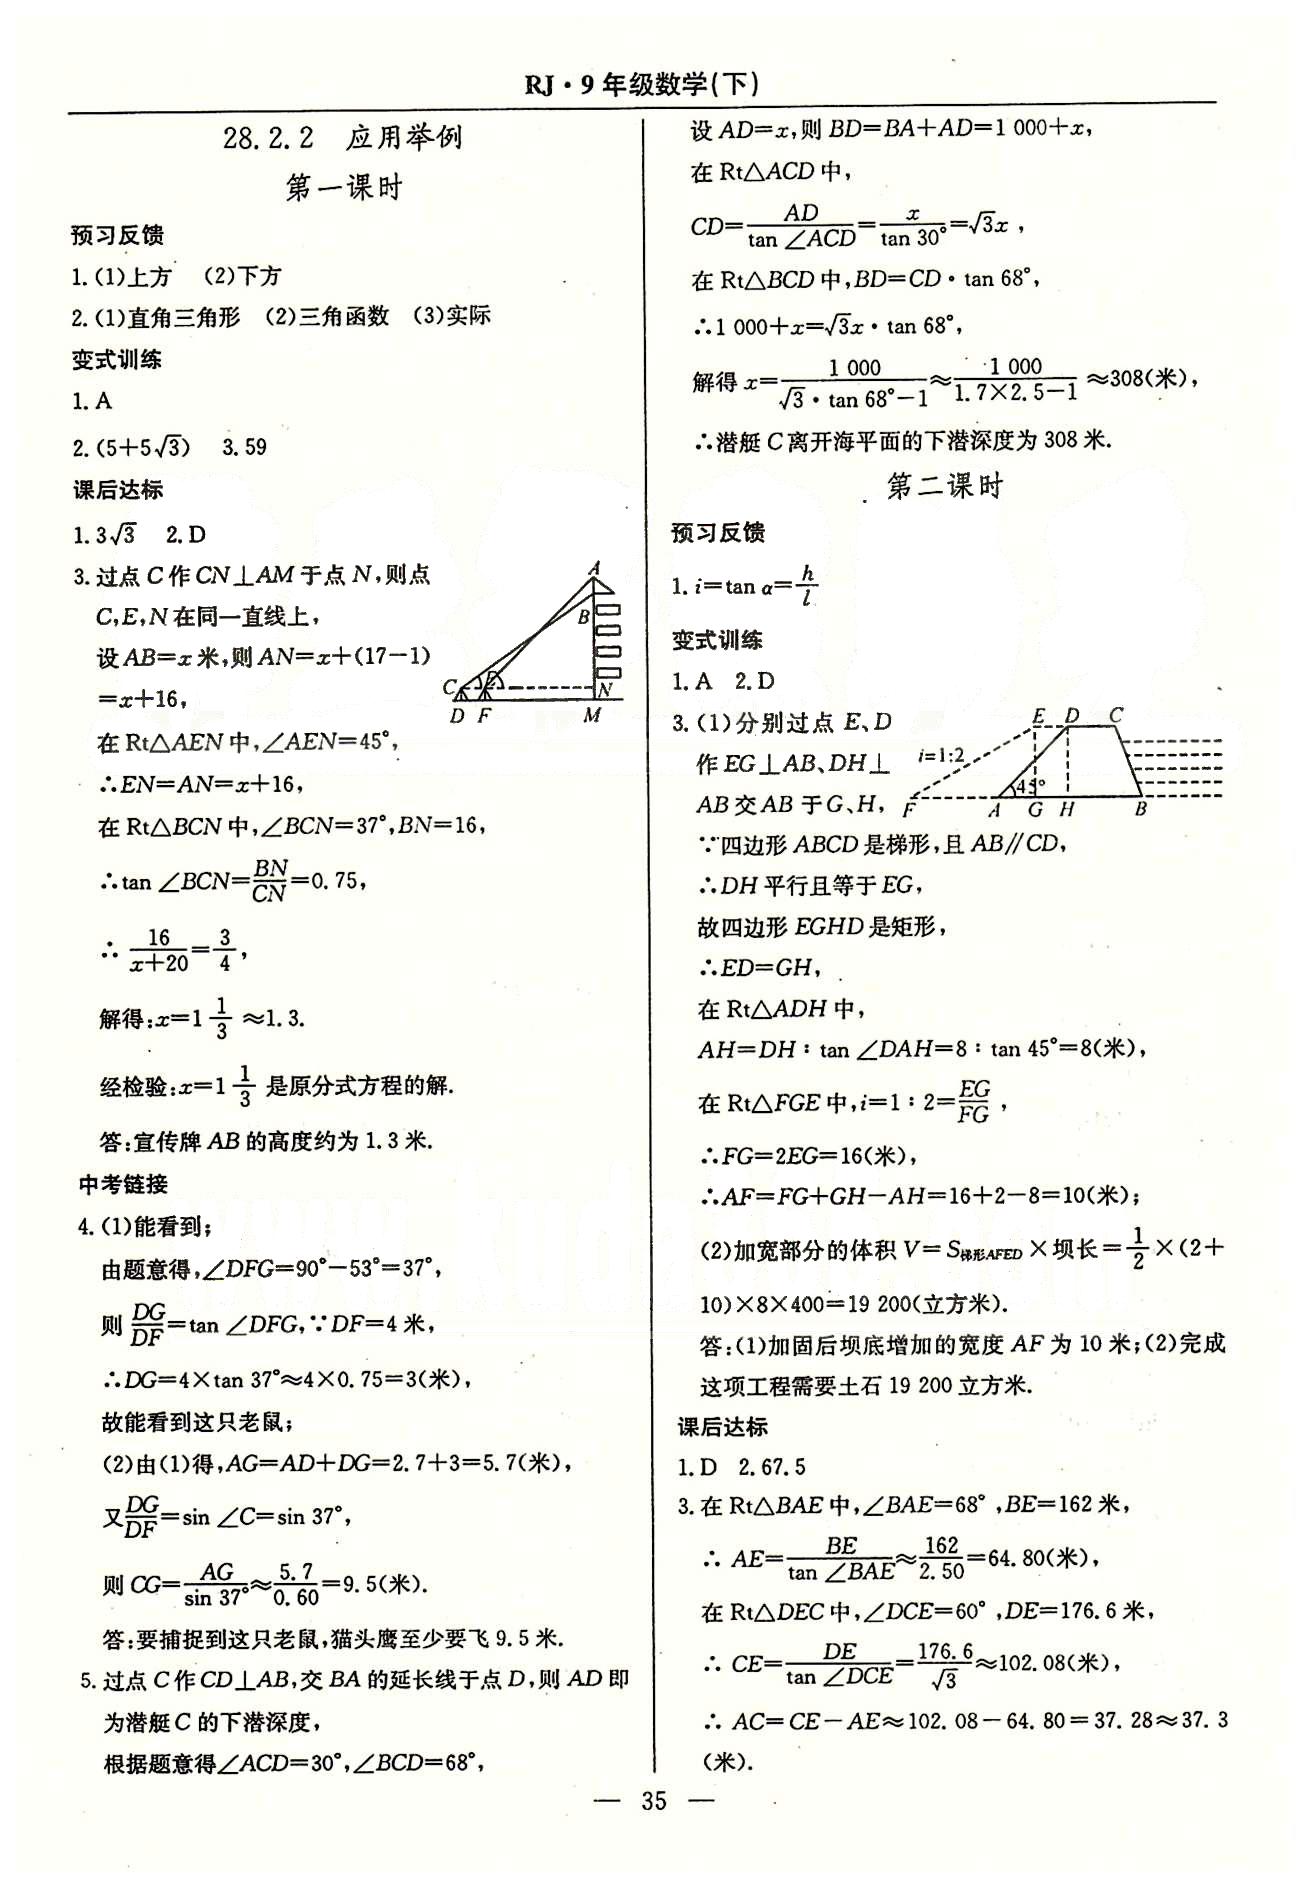 RJ·9年级数学(下)
28.2.2 应用举例
第一课时
预习反馈
1.(1)上方 (2)下方
2.(1)直角三角形 (2)三角函数 (3)实际
变式训练
1.A
2.(5+5√3) 3.59
课后达标
1.3√3 2.D
3.过点C作CN⊥AM于点N,则点
C,E,N在同一直线上,
设AB=x米,则AN=x+(17-1)
=x+16,
A
B
C E N
D F M
在Rt△AEN中,∠AEN=45°,
∴EN=AN=x+16,
在Rt△BCN中,∠BCN=37°,BN=16,
∴tan∠BCN=BN/CN=0.75,
∴16/(x+20)=3/4,
解得:x=1 1/3≈1.3.
经检验:x=1 1/3 是原分式方程的解.
答:宣传牌AB的高度约为1.3米.
中考链接
4.(1)能看到;
由题意得,∠DFG=90°-53°=37°,
则DG/DF=tan∠DFG,∵DF=4米,
∴DG=4×tan 37°≈4×0.75=3(米),
故能看到这只老鼠;
(2)由(1)得,AG=AD+DG=2.7+3=5.7(米),
又DG/DF=sin∠C=sin 37°,
则CG=AG/sin 37°≈5.7/0.60=9.5(米).
答:要捕捉到这只老鼠,猫头鹰至少要飞9.5米.
5.过点C作CD⊥AB,交BA的延长线于点D,则AD即
为潜艇C的下潜深度,
根据题意得∠ACD=30°,∠BCD=68°,
设AD=x,则BD=BA+AD=1 000+x,
在Rt△ACD中,
CD=AD/tan∠ACD=x/tan 30°=√3x,
在Rt△BCD中,BD=CD·tan 68°,
∴1 000+x=√3x·tan 68°,
解得x=1 000/(√3·tan 68°-1)≈1 000/(1.7×2.5-1)≈308(米),
∴潜艇C离开海平面的下潜深度为308米.
第二课时
预习反馈
1.i=tan α=h/l
变式训练
1.A 2.D
3.(1)分别过点E、D
作EG⊥AB、DH⊥
AB交AB于G、H,
E D C
i=1:2
45°
F A G H B
∵四边形ABCD是梯形,且AB∥CD,
∴DH平行且等于EG,
故四边形EGHD是矩形,
∴ED=GH,
在Rt△ADH中,
AH=DH∶tan∠DAH=8∶tan 45°=8(米),
在Rt△FGE中,i=1∶2=EG/FG,
∴FG=2EG=16(米),
∴AF=FG+GH-AH=16+2-8=10(米);
(2)加宽部分的体积V=S梯形AFED×坝长=1/2×(2+
10)×8×400=19 200(立方米).
答:(1)加固后坝底增加的宽度AF为10米;(2)完成
这项工程需要土石19 200立方米.
课后达标
1.D 2.67.5
3.在Rt△BAE中,∠BAE=68°,BE=162米,
∴AE=BE/tan∠BAE≈162/2.50=64.80(米),
在Rt△DEC中,∠DCE=60°,DE=176.6米,
∴CE=DE/tan∠DCE=176.6/√3≈102.08(米),
∴AC=CE-AE≈102.08-64.80=37.28≈37.3
(米).
— 35 —